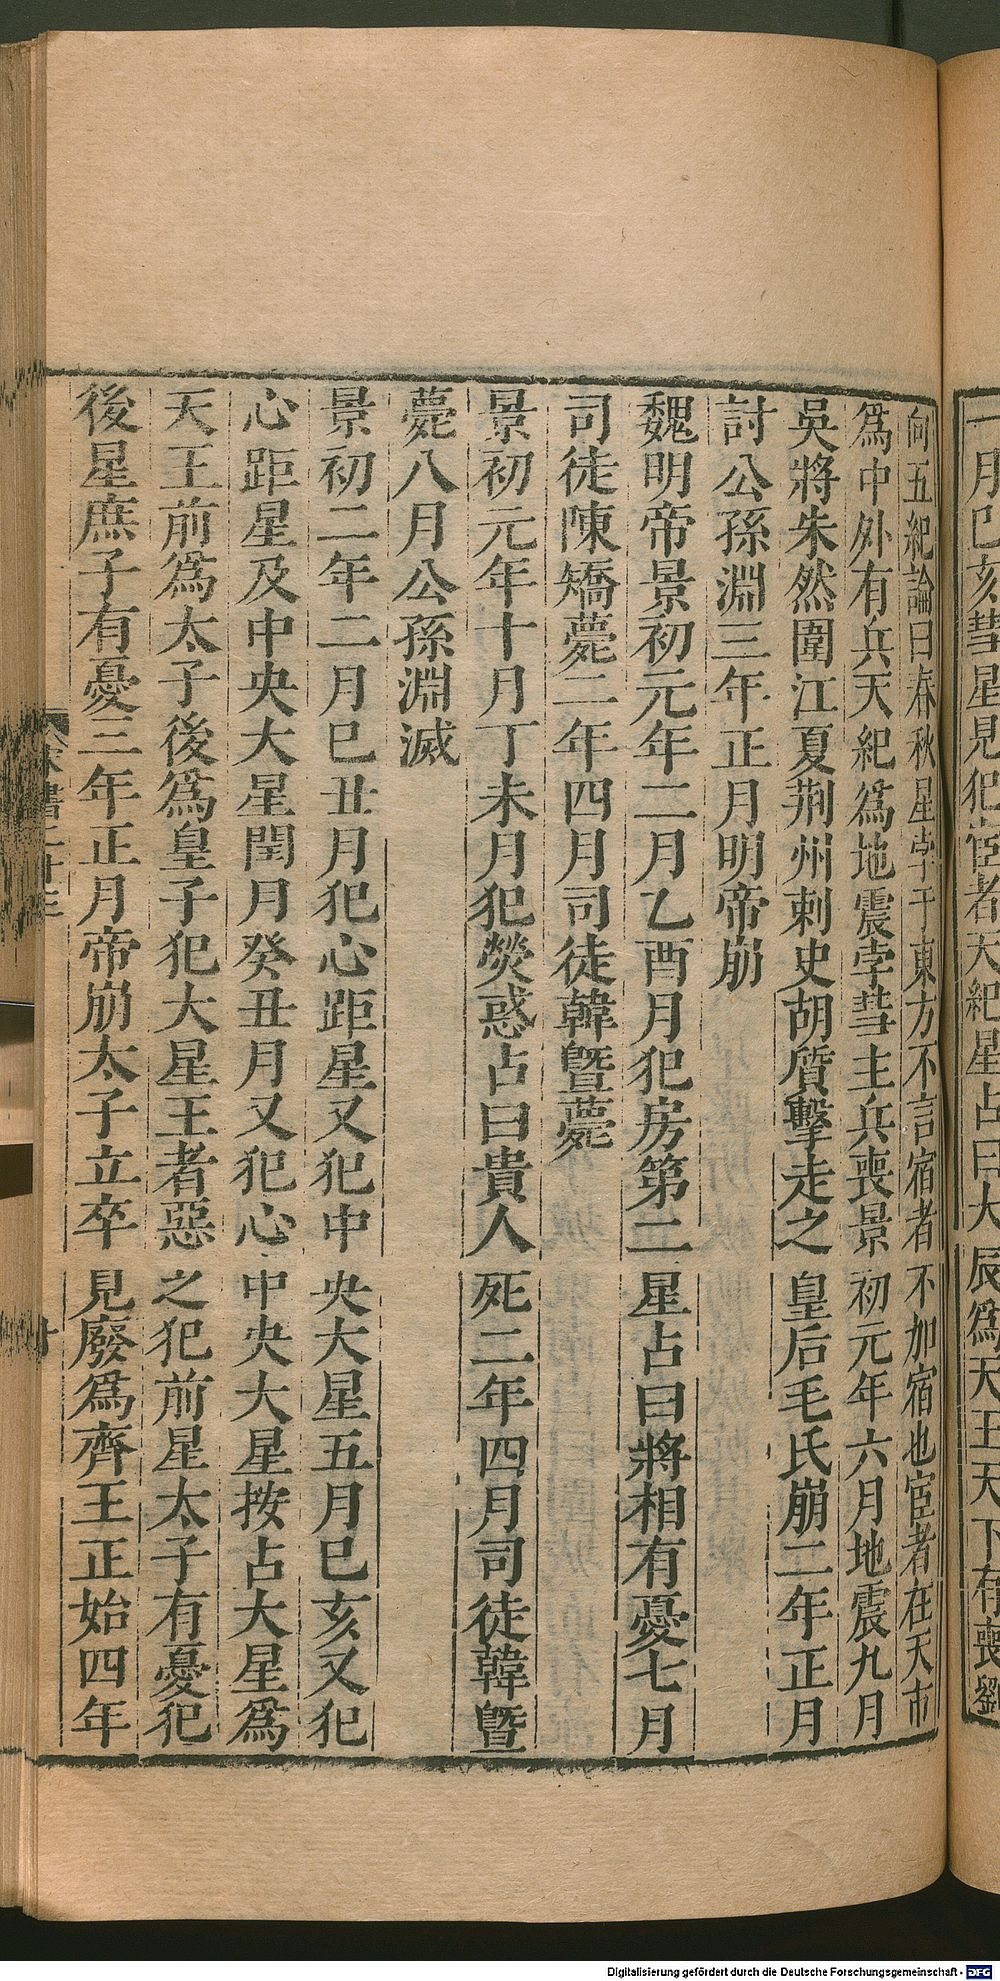 一月巳亥彗星見犯宦者天紀星占曰大辰爲天王天下有喪劉
向五紀論曰春秋星孛于東方不言宿者不加宿也宦者在天市
爲中外有兵天紀爲地震孛彗主兵喪景初元年六月地震九月
吳將朱然圍江夏荆州刺史胡質擊走之皇后毛氏崩二年正月
討公孫淵三年正月明帝崩
魏明帝景初元年二月乙酉月犯房第二星占曰將相有憂七月
司徒陳矯薨二年四月司徒韓曁薨
景初元年十月丁未月犯熒惑占曰貴人死二年四月司徒韓曁
薨八月公孫淵滅
景初二年二月巳丑月犯心距星又犯中央大星五月巳亥又犯
心距星及中央大星閏月癸丑月又犯心中央大星按占大星爲
天王前爲太子後爲皇子犯大星王者惡之犯前星太子有憂犯
後星庶子有憂三年正月帝崩太子立卒見廢爲齊王正始四年
宋書二十三
十
Digitalisierung gefördert durch die Deutsche Forschungsgemeinschaft - DFG